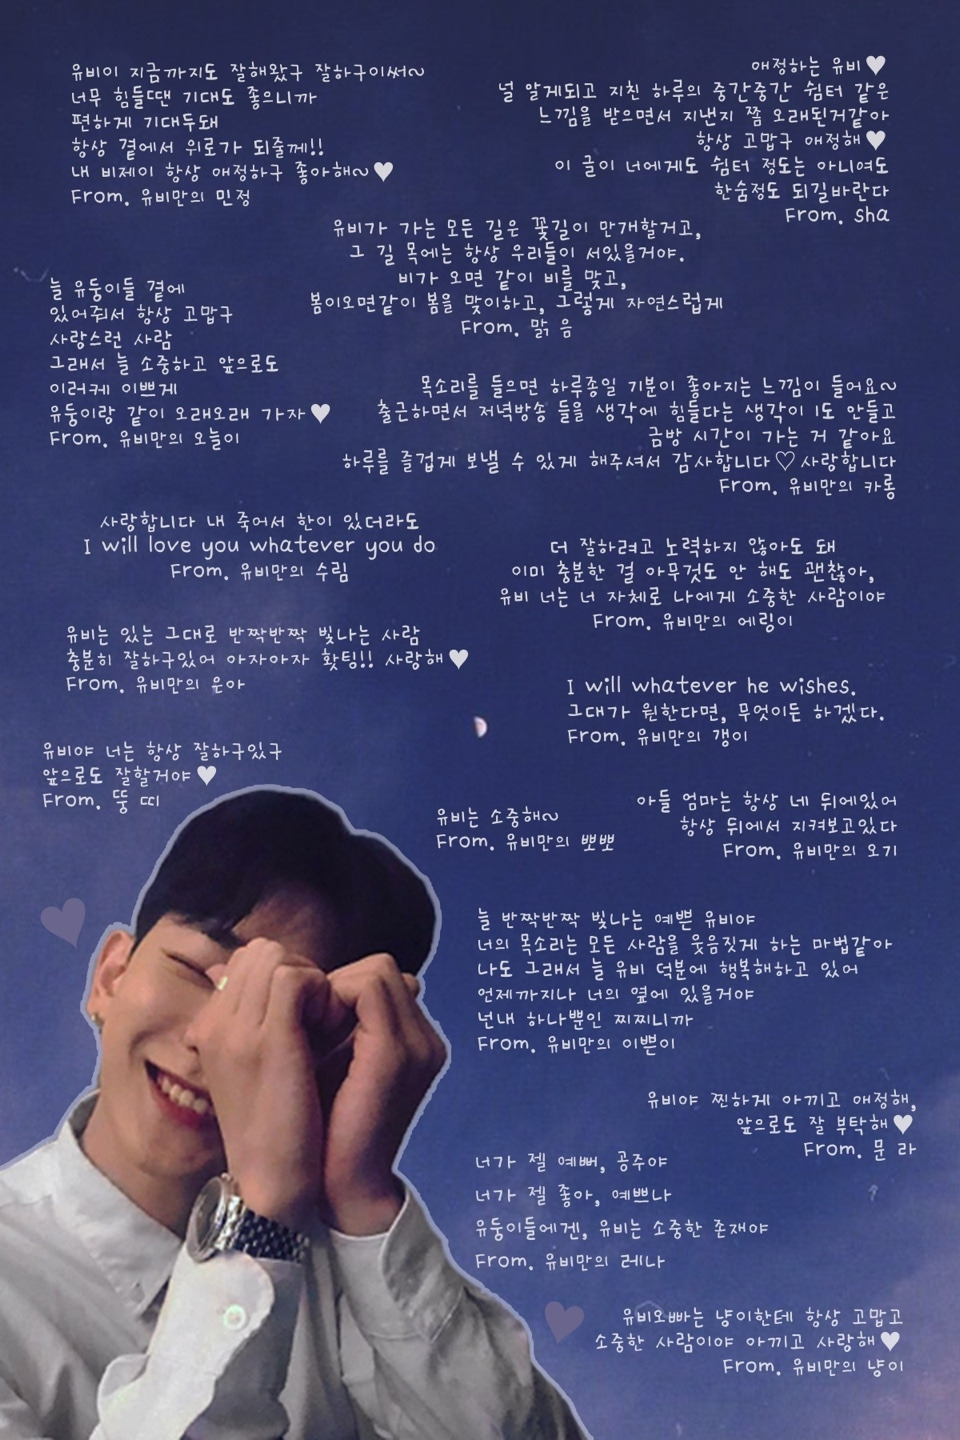 유비이 지금까지도 잘해왔구 잘하구이써~
너무 힘들땐 기대도 좋으니까
편하게 기대두돼
항상 곁에서 위로가 되줄께!!
내 비제이 항상 애정하구 좋아해~♥
From. 유비만의 민정
애정하는 유비♥
널 알게되고 지친 하루의 중간중간 쉼터 같은
느낌을 받으면서 지낸지 쫌 오래된거같아
항상 고맙구 애정해♥
이 글이 너에게도 쉼터 정도는 아니여도
한숨정도 되길바란다
From. sha
유비가 가는 모든 길은 꽃길이 만개할거고,
그 길 목에는 항상 우리들이 서있을거야.
비가 오면 같이 비를 맞고,
봄이오면같이 봄을 맞이하고, 그렇게 자연스럽게
From. 맑 음
늘 유둥이들 곁에
있어줘서 항상 고맙구
사랑스런 사람
그래서 늘 소중하고 앞으로도
이러케 이쁘게
유둥이랑 같이 오래오래 가자♥
From. 유비만의 오늘이
목소리를 들으면 하루종일 기분이 좋아지는 느낌이 들어요~
출근하면서 저녁방송 들을 생각에 힘들다는 생각이 1도 안들고
금방 시간이 가는 거 같아요
하루를 즐겁게 보낼 수 있게 해주셔서 감사합니다♡사랑합니다
From. 유비만의 카롱
사랑합니다 내 죽어서 한이 있더라도
I will love you whatever you do
From. 유비만의 수림
더 잘하려고 노력하지 않아도 돼
이미 충분한 걸 아무것도 안 해도 괜찮아,
유비 너는 너 자체로 나에게 소중한 사람이야
From. 유비만의 에링이
유비는 있는 그대로 반짝반짝 빛나는 사람
충분히 잘하구있어 아자아자 홧팅!! 사랑해♥
From. 유비만의 운아
I will whatever he wishes.
그대가 원한다면, 무엇이든 하겠다.
From. 유비만의 갱이
유비야 너는 항상 잘하구있구
앞으로도 잘할거야♥
From. 뚱 띠
유비는 소중해~
From. 유비만의 뽀뽀
아들 엄마는 항상 네 뒤에있어
항상 뒤에서 지켜보고있다
From. 유비만의 오기
늘 반짝반짝 빛나는 예쁜 유비야
너의 목소리는 모든 사람을 웃음짓게 하는 마법같아
나도 그래서 늘 유비 덕분에 행복해하고 있어
언제까지나 너의 옆에 있을거야
넌내 하나뿐인 찌찌니까
From. 유비만의 이쁜이
유비야 찐하게 아끼고 애정해,
앞으로도 잘 부탁해♥
From. 문 라
너가 젤 예뻐, 공주야
너가 젤 좋아, 예쁘나
유둥이들에겐, 유비는 소중한 존재야
From. 유비만의 레나
유비오빠는 냥이한테 항상 고맙고
소중한 사람이야 아끼고 사랑해♥
From. 유비만의 냥이